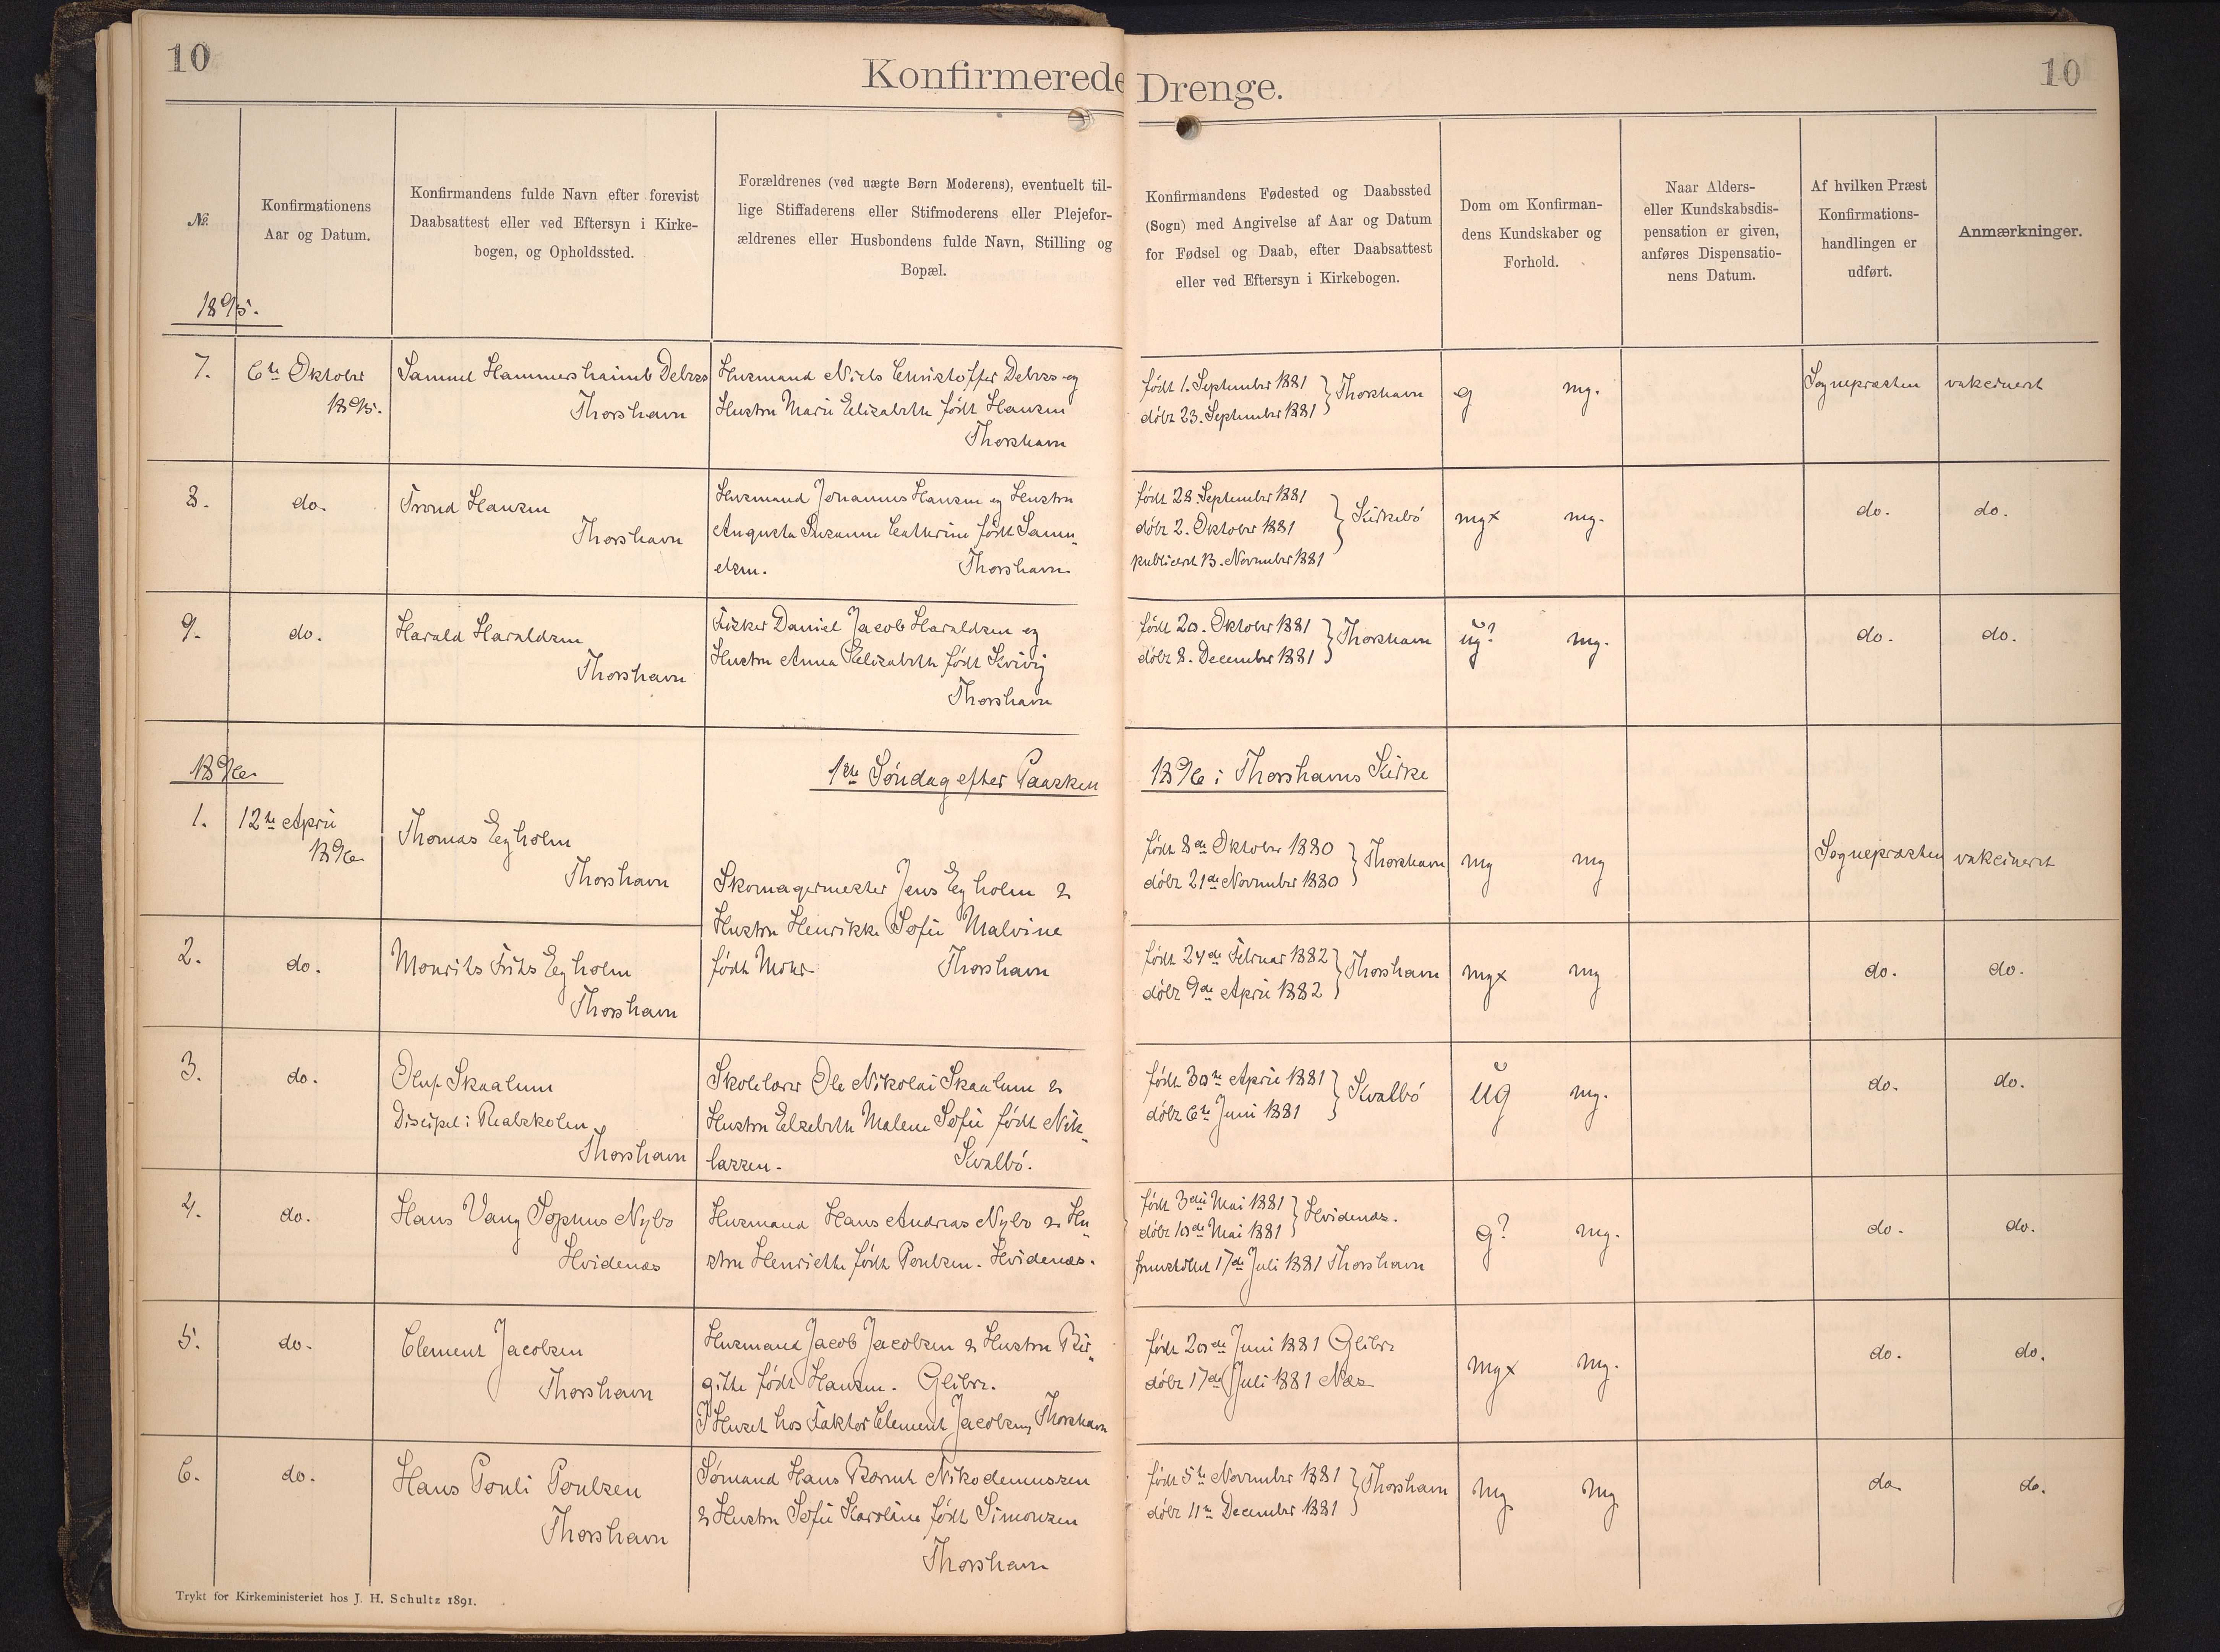 10
Konfirmerede Drenge.
10
№.
Konfirmationens
Aar og Datum.
Konfirmandens fulde Navn efter forevist
Daabsattest eller ved Eftersyn i Kirke-
bogen, og Opholdssted.
Forældrenes (ved uægte Børn Moderens), eventuelt til-
lige Stiffaderens eller Stifmoderens eller Plejefor-
ældrenes eller Husbondens fulde Navn, Stilling og
Bopæl.
Konfirmandens Fødested og Daabssted
(Sogn) med Angivelse af Aar og Datum
for Fødsel og Daab, efter Daabsattest
eller ved Eftersyn i Kirkebogen.
Dom om Konfirman-
dens Kundskaber og
Forhold.
Naar Alders-
eller Kundskabsdis-
pensation er given,
anføres Dispensatio-
nens Datum.
Af hvilken Præst
Konfirmations-
handlingen er
udført.
Anmærkninger.
1895.
7.
6te Oktober
1895.
Samuel Hammershaimb Debess
Thorshavn
Husmand Niels Christoffer Debess og
Hustru Marie Elizabeth født Hansen
Thorshavn
født 1. September 1881
døbt 23. September 1881
} Thorshavn
g mg.
Sognepræsten
vakcineret
8.
do.
Trond Hansen
Thorshavn
Husmand Johannus Hansen og Hustru
Augusta Susanne Cathrine født Samu„
elsen. Thorshavn
født 28. September 1881
døbt 2. Oktober 1881
publiceret 13. November 1881
} Kirkebø
mg× mg.
do.
do.
9.
do.
Harald Haraldsen
Thorshavn
Fisker Daniel Jacob Haraldsen og
Hustru Anna Elizabeth født Kvivig
Thorshavn
født 20. Oktober 1881
døbt 8. December 1881
} Thorshavn
ug? mg.
do.
do.
1896
1ste Søndag efter Paasken 1896 i Thorshavns Kirke
1.
12te April
1896
Thomas Egholm
Thorshavn
Skomagermester Jens Egholm &
Hustru Henrikke Sofie Malvine
født Mohr Thorshavn
født 8de Oktober 1880
døbt 21de November 1880
} Thorshavn
mg mg
Sognepræsten
vakcineret
2.
do.
Mourits Frits Egholm
Thorshavn
født 24de Februar 1882
døbt 9de April 1882
} Thorshavn
mg× mg
do.
do.
3.
do.
Oluf Skaalum
Discipel i Realskolen
Thorshavn
Skolelærer Ole Nikolai Skaalum &
Hustru Elsebeth Malene Sofie født Nik„
lassen. Kvalbø.
født 30te April 1881
døbt 6te Juni 1881
} Kvalbø
ug mg.
do.
do.
4.
do.
Hans Vang Sophus Nybo
Hvidenæs
Husmand Hans Andreas Nybo & Hu„
stru Henriette født Poulsen. Hvidenæs.
født 3die Mai 1881
døbt 10de Mai 1881
} Hvidenæs.
fremstillet 17de Juli 1881 Thorshavn
g? mg.
do.
do.
5.
do.
Clement Jacobsen
Thorshavn
Husmand Jacob Jacobsen & Hustru Bir„
gitte født Hansen. Glibre.
I Huset hos Faktor Clement Jacobsen, Thorshavn
født 20de Juni 1881 Glibre
døbt 17de Juli 1881 Næs
mg× mg.
do.
do.
6.
do.
Hans Pouli Poulsen
Thorshavn
Sømand Hans Berent Nikodemussen
& Hustru Sofie Karoline født Simonsen
Thorshavn
født 5te November 1881
døbt 11te December 1881
} Thorshavn
mg mg
do
do.
Trykt for Kirkeministeriet hos J. H. Schultz 1891.